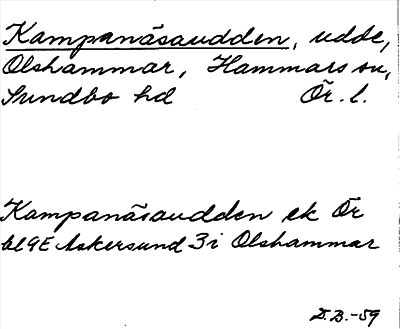 Kampanäsaudden, udde,
Olshammar, Hammars sn,
Sundbo hd Ör. l.
Kampanäsaudden ek Ör
bl 9E Askersund 3i Olshammar
D.B.-59